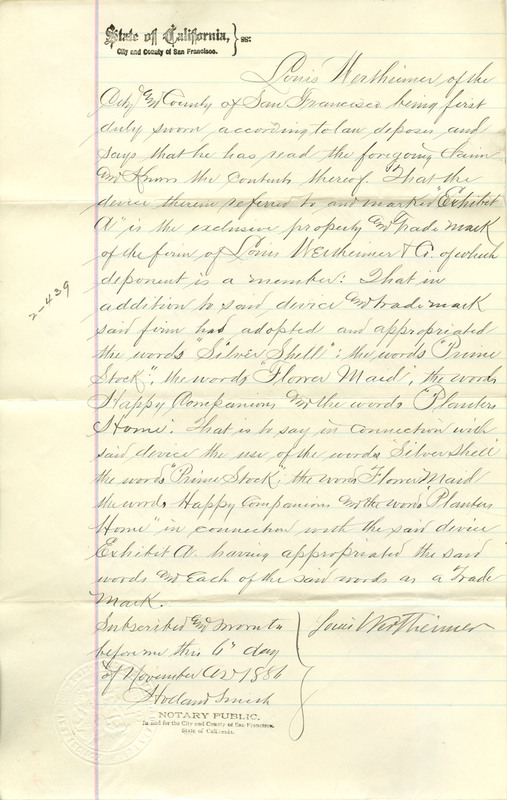 State of California, } ss:
City and County of San Francisco.
Louis Wertheimer of the
City and County of San Francisco being first
duly sworn according to law deposes and
says that he has read the foregoing claim
and Knows the contents thereof. That the
device therein referred to and marked "Exhibit
A" is the exclusive property and Trade mark
of the firm of Louis Wertheimer & Co. of which
deponent is a member: That in
addition to said device and trade mark
said firm had adopted and appropriated
the words "Silver Shell"; the words "Prime
Stock"; the words "Flower Maid", the words
Happy Companions and the words "Planters
Home". That is to say in connection with
said device the use of the words "Silver Shell"
the words "Prime Stock"; the words "Flower Maid
the words Happy Companions and the words "Planters
Home" in connection with the said device
Exhibit A. having appropriated the said
words and Each of the said words as a Trade
Mark.
2-439
Subscribed and sworn to
before me this 6th day
of November AD 1886
Holland Smith
NOTARY PUBLIC.
In and for the City and County of San Francisco,
State of California.
Louis Wertheimer